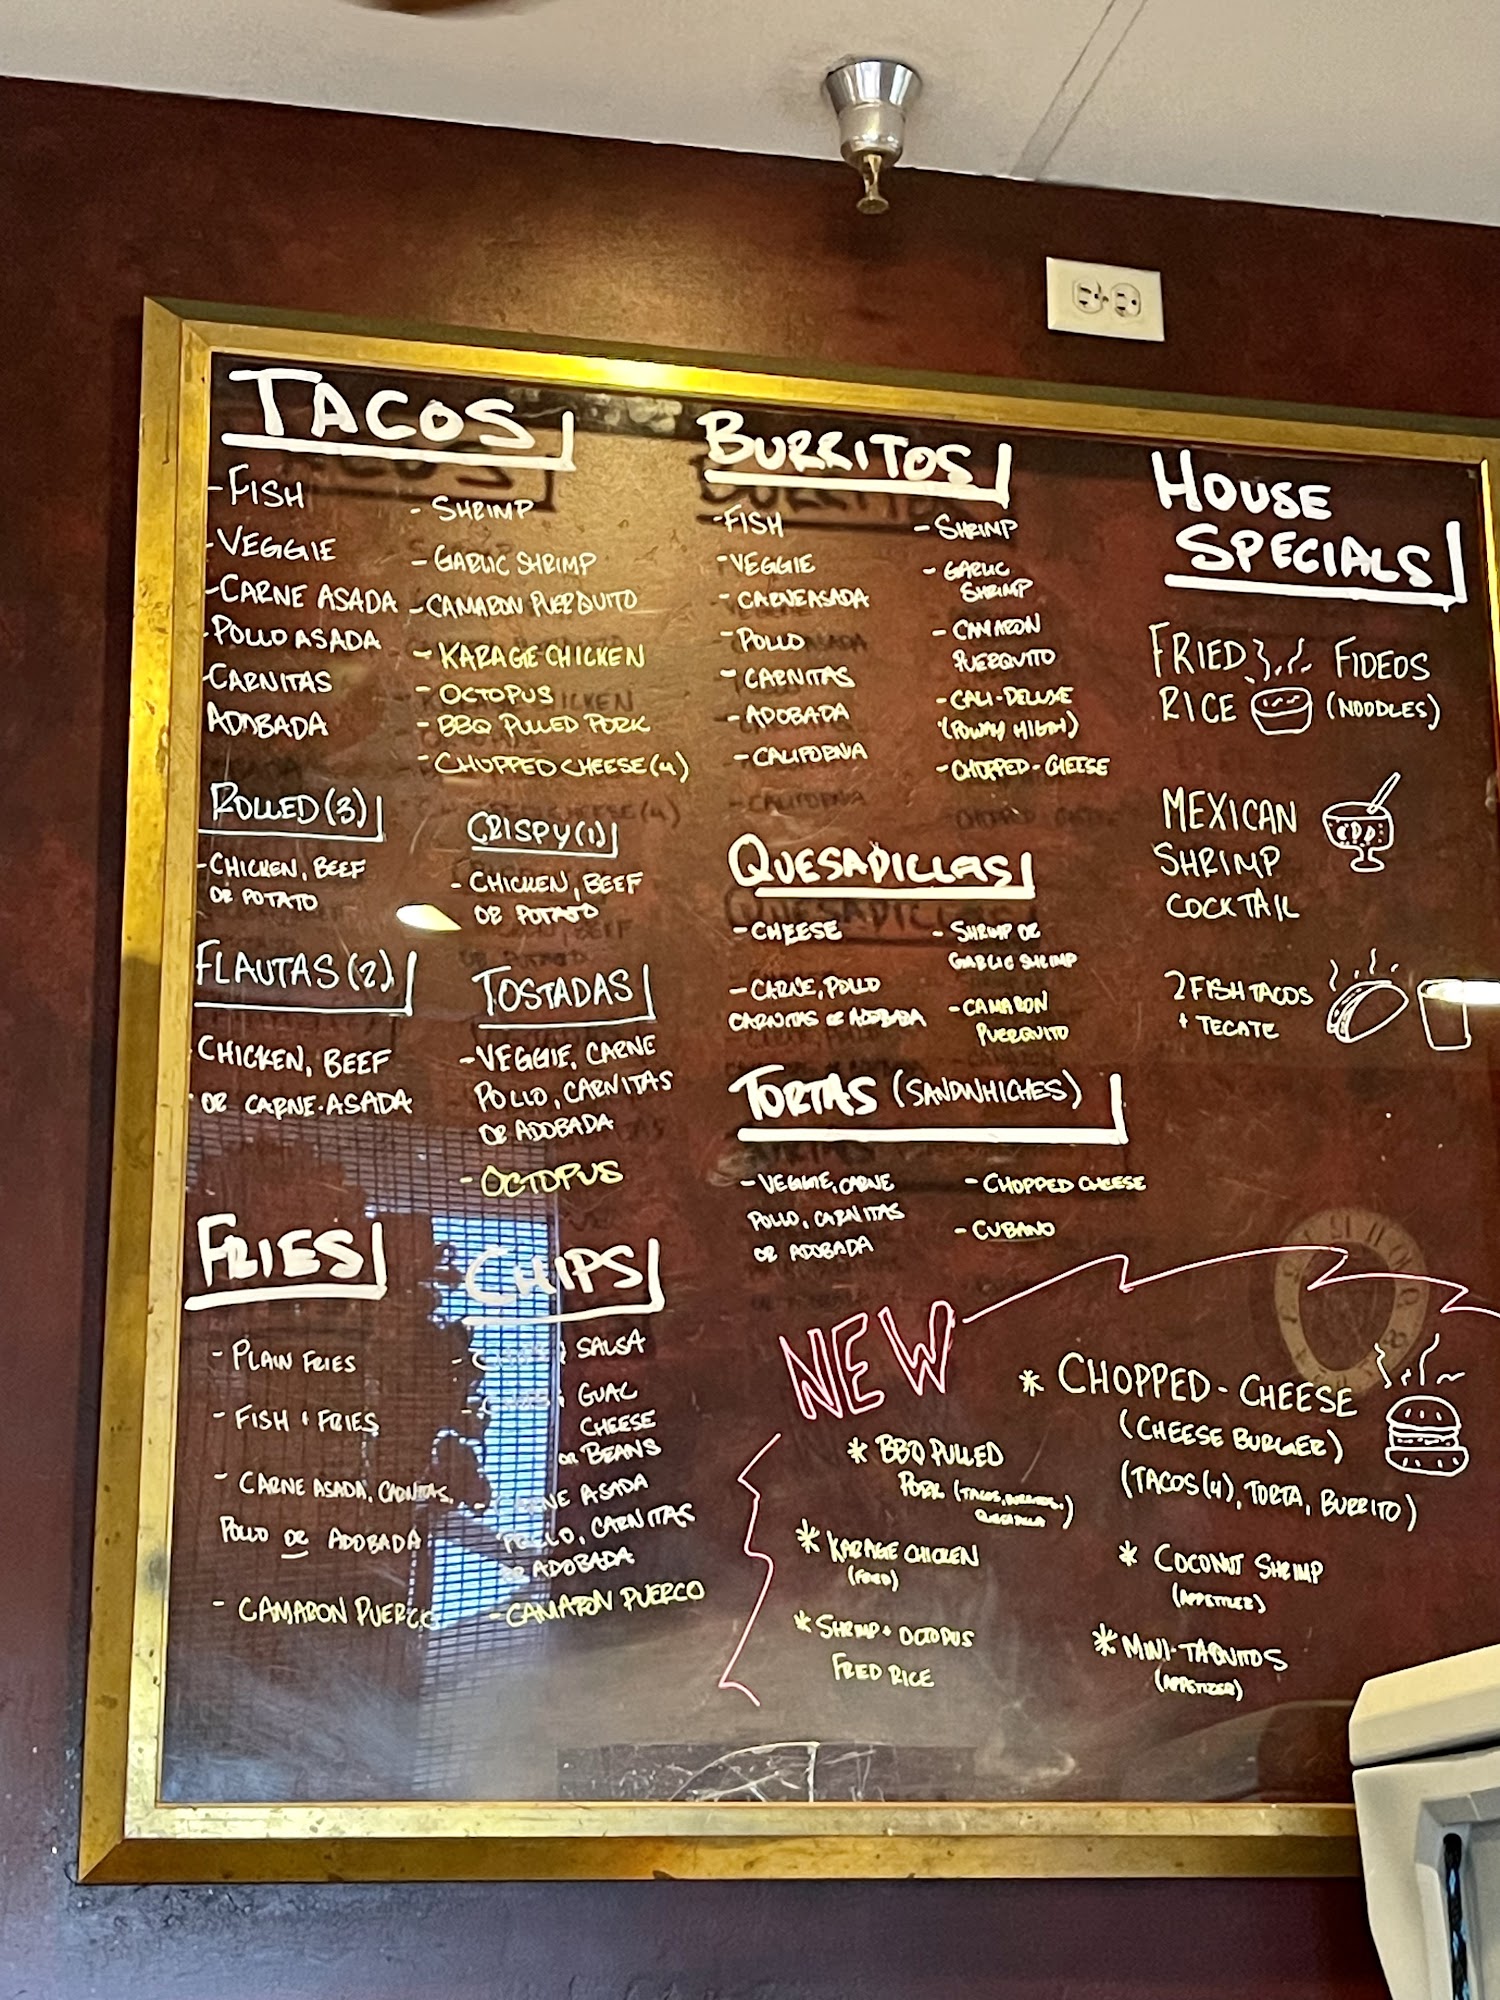 TACOS
- FISH
- VEGGIE
- CARNE ASADA
- POLLO ASADA
CARNITAS
ADOBADA
- SHRIMP
- GARLIC SHRIMP
- CAMARON PUERQUITO
- KARAGE CHICKEN
- OCTOPUS
- BBQ PULLED PORK
- CHOPPED CHEESE (4)
ROLLED (3)
- CHICKEN, BEEF
OR POTATO
CRISPY (1)
- CHICKEN, BEEF
OR POTATO
FLAUTAS (2)
CHICKEN, BEEF
OR CARNE-ASADA
TOSTADAS
- VEGGIE, CARNE
POLLO, CARNITAS
OR ADOBADA
- OCTOPUS
FRIES
- PLAIN FRIES
- FISH + FRIES
- CARNE ASADA, CARNITAS,
POLLO OR ADOBADA
- CAMARON PUERCO
CHIPS
SALSA
GUAC
CHEESE
OR BEANS
ASADA
POLLO, CARNITAS
OR ADOBADA
- CAMARON PUERCO
BURRITOS
- FISH
- VEGGIE
- CARNE ASADA
- POLLO
- CARNITAS
- ADOBADA
- CALIFORNIA
- SHRIMP
- GARLIC
SHRIMP
- CAMARON
PUERQUITO
- CALI-DELUXE
(POWAY HIGH)
- CHOPPED-CHEESE
QUESADILLAS
- CHEESE
- CARNE, POLLO
CARNITAS OR ADOBADA
- SHRIMP OR
GARLIC SHRIMP
- CAMARON
PUERQUITO
TORTAS (SANDWHICHES)
- VEGGIE, CARNE
POLLO, CARNITAS
OR ADOBADA
- CHOPPED CHEESE
- CUBANO
HOUSE
SPECIALS
FRIED
RICE
FIDEOS
(NOODLES)
MEXICAN
SHRIMP
COCKTAIL
2 FISH TACOS
+ TECATE
NEW
* BBQ PULLED
PORK (TACOS, BURRITOS,
QUESADILLA)
* KARAGE CHICKEN
* SHRIMP + OCTOPUS
FRIED RICE
* CHOPPED-CHEESE
(CHEESE BURGER)
(TACOS (4), TORTA, BURRITO)
* COCONUT SHRIMP
(APPETIZER)
* MINI-TAQUITOS
(APPETIZER)